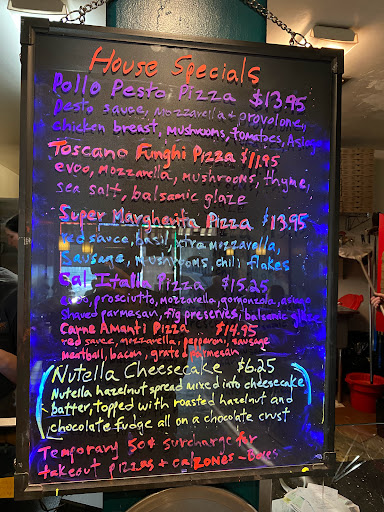 House Specials
Pollo Pesto Pizza $13.95
Pesto sauce, mozzarella + provolone,
chicken breast, mushrooms, tomatoes, Asiago
Toscano Funghi Pizza $11.95
evoo, mozzarella, mushrooms, thyme,
sea salt, balsamic glaze
Super Margherita Pizza $13.95
red sauce, basil, mozzarella,
Sausage, mushrooms, chili flakes
Pizza $15.25
evoo, prosciutto, mozzarella, gorgonzola, asiago
shaved parmesan, fig preserves, balsamic glaze
Carne Amanti Pizza $14.95
red sauce, mozzarella, pepperoni, sausage
meatball, bacon, grated parmesan
Nutella Cheesecake $6.25
Nutella hazelnut spread mixed into cheesecake
batter, topped with roasted hazelnut and
chocolate fudge all on a chocolate crust
Temporary 50¢ surcharge for
takeout pizzas + calzones - Boxes